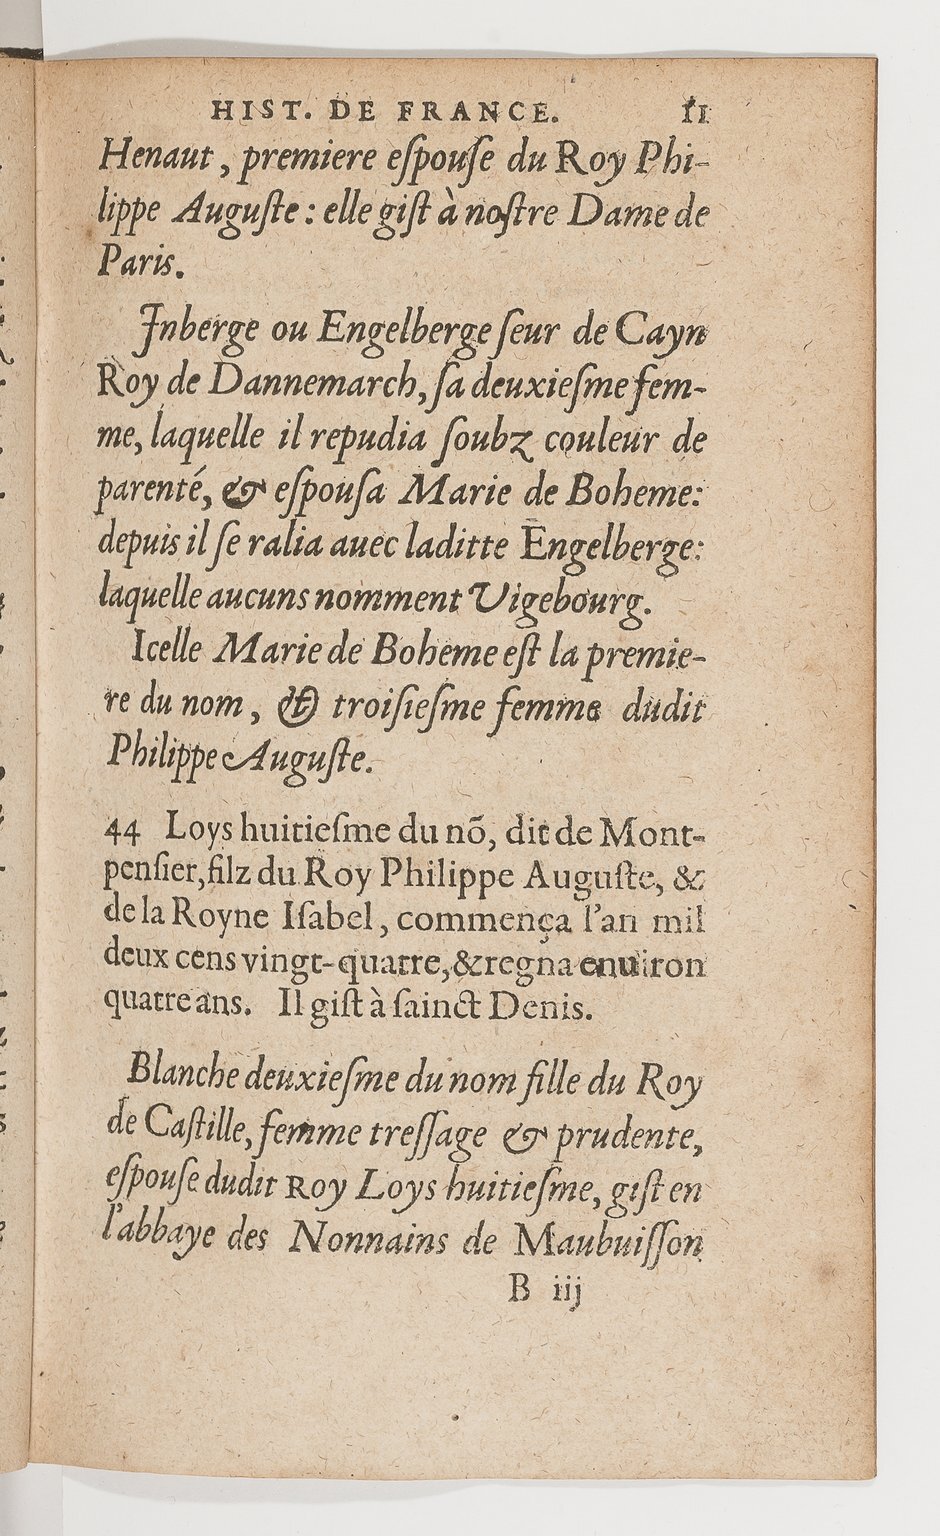 HIST. DE FRANCE. 11
Henaut, premiere eſpouſe du Roy Phi-
lippe Auguſte: elle giſt à noſtre Dame de
Paris.
Inberge ou Engelberge ſeur de Cayn
Roy de Dannemarch, ſa deuxieſme fem-
me, laquelle il repudia ſoubz couleur de
parenté, & eſpouſa Marie de Boheme:
depuis il ſe ralia auec laditte Engelberge:
laquelle aucuns nomment Vigebourg.
Icelle Marie de Boheme eſt la premie-
re du nom, & troiſieſme femme dudit
Philippe Auguſte.
44 Loys huitieſme du nõ, dit de Mont-
penſier, filz du Roy Philippe Auguſte, &
de la Royne Iſabel, commença l'an mil
deux cens vingt-quatre, & regna enuiron
quatre ans. Il giſt à ſainct Denis.
Blanche deuxieſme du nom fille du Roy
de Caſtille, femme treſſage & prudente,
eſpouſe dudit Roy Loys huitieſme, giſt en
l'abbaye des Nonnains de Maubuiſſon
B iij